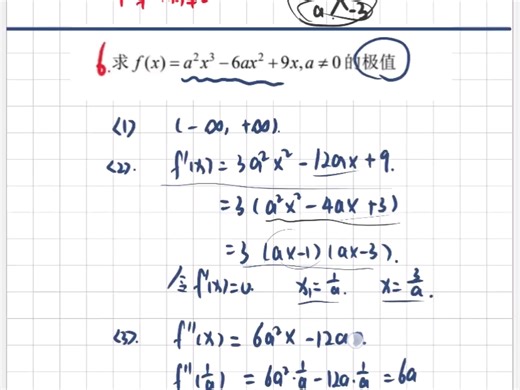 a > -3
6.求 f(x) = a²x³ − 6ax² + 9x, a ≠ 0 的极值
(1) (-∞, +∞).
(2). f'(x) = 3a²x² - 12ax + 9.
= 3(a²x² - 4ax + 3)
= 3(ax-1)(ax-3).
令f'(x)=0. x₁=1/a. x=3/a.
(3). f''(x) = 6a²x - 12a.
f''(1/a) = 6a²·1/a - 12a·1/a = 6a